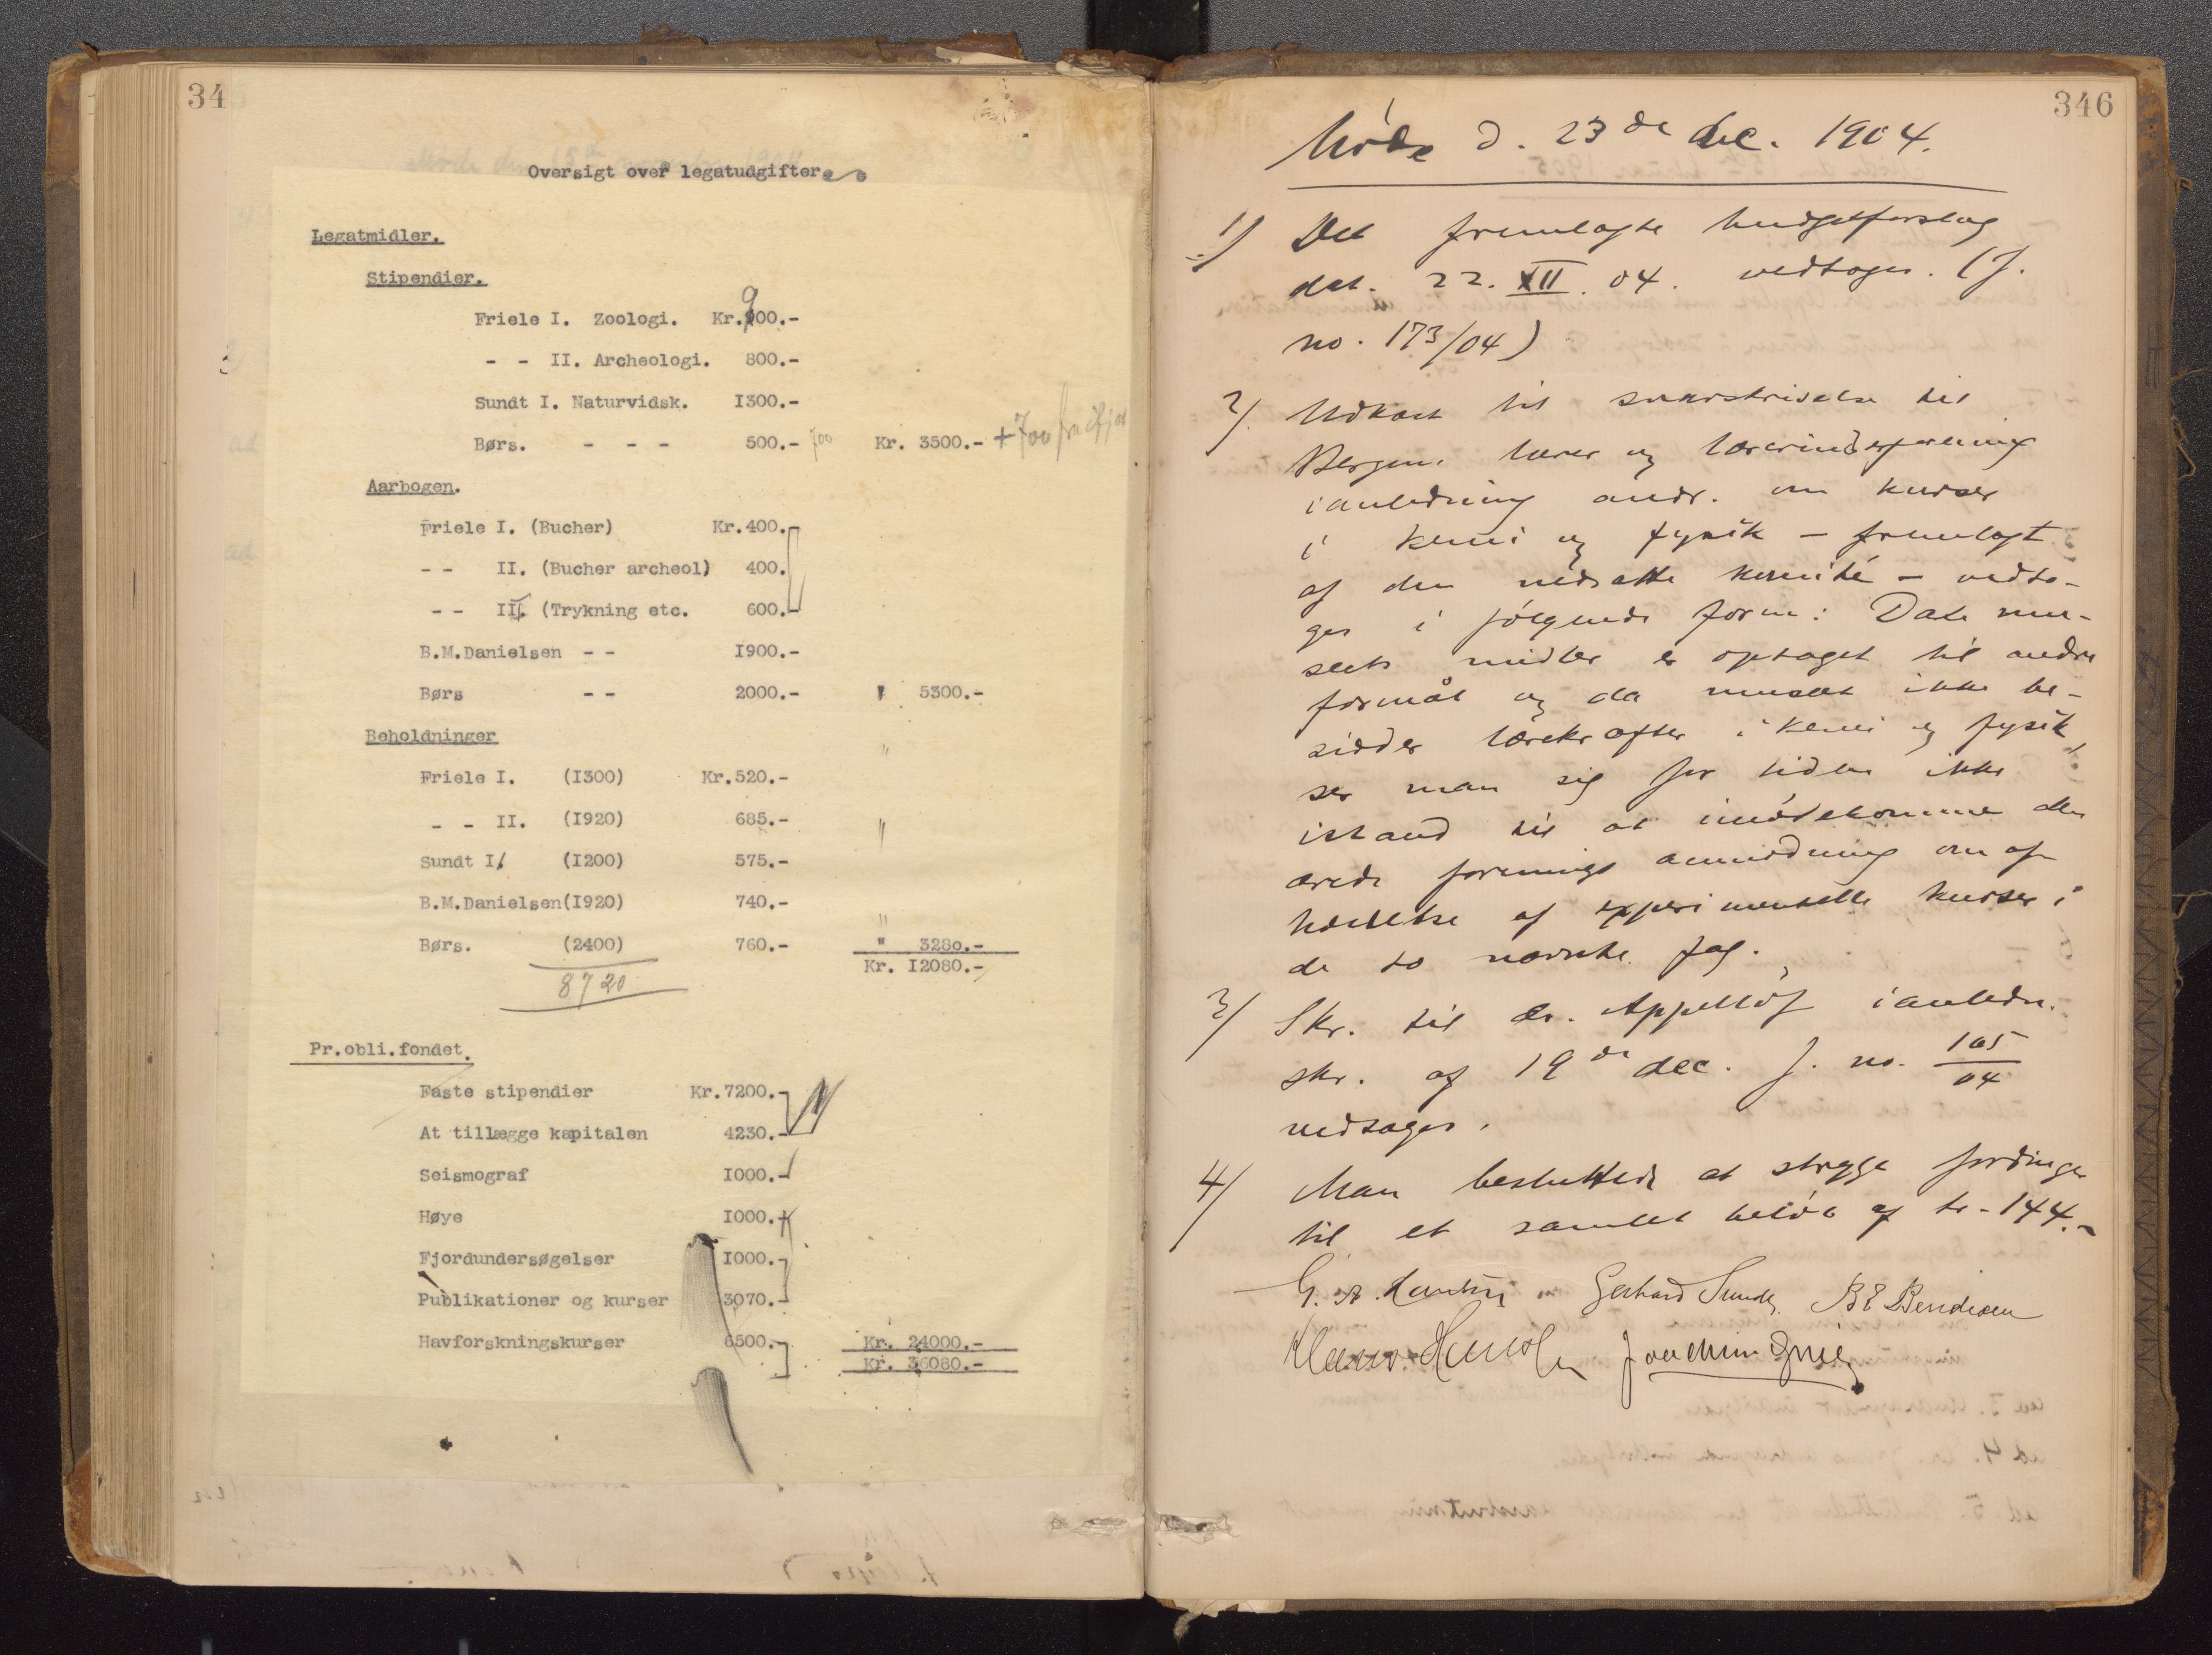 34
Oversigt over legatudgifter.
Legatmidler.
Stipendier.
Friele I. Zoologi. Kr.900.-
- - II. Archeologi. 800.-
Sundt I. Naturvidsk. I300.-
Børs. - - - 500.- 700 Kr. 3500.- + 700 fra ifjor
Aarbogen.
Friele I. (Bucher) Kr.400.-
- - II. (Bucher archeol) 400.
- - II. (Trykning etc. 600.-
B.M.Danielsen - - I900.-
Børs - - 2000.- " 5300.-
Beholdninger
Friele I. (I300) Kr.520.-
- - II. (I920) 685.-
Sundt I. (I200) 575.-
B.M.Danielsen(I920) 740.-
Børs. (2400) 760.- " 3280.-
8720 Kr. I2080.-
Pr.obli.fondet.
Faste stipendier Kr.7200.-
At tillægge kapitalen 4230.-
Seismograf I000.-
Høye I000.-
Fjordundersøgelser I000.-
Publikationer og kurser 3070.-
Havforskningskurser 6500.- Kr. 24000.-
Kr. 36080.-
346
Møde d. 23de dec. 1904.
1/ Det fremlagte budgetforslag
dat. 22. XII. 04. vedtoges. (J.
no. 173/04)
2/ Udkast til svarskrivelse til
Bergens lærer og lærerindeforening
i anledning andr. om kurser
i kemi og fysik – fremlagt
af den nedsatte komité – vedto-
ges i følgende form: Da mu-
seets midler er optaget til andre
formål og da museet ikke be-
sidder lærekræfter i kemi og fysik,
ser man sig for tiden ikke
istand til at imødekomme den
ærede forenings anmodning om af-
holdelse af experimentelle kurser i
de to nævnte fag.
3/ Skr. til dr. Appelløf i anledn.
skr. af 19de dec. J. no. 165/04
vedtoges.
4/ Man besluttede at stryge fordringer
til et samlet beløb af kr. 144.-
Gerhard Sundt. B E Bendixen
Klaus Hanssen Joachim Grieg